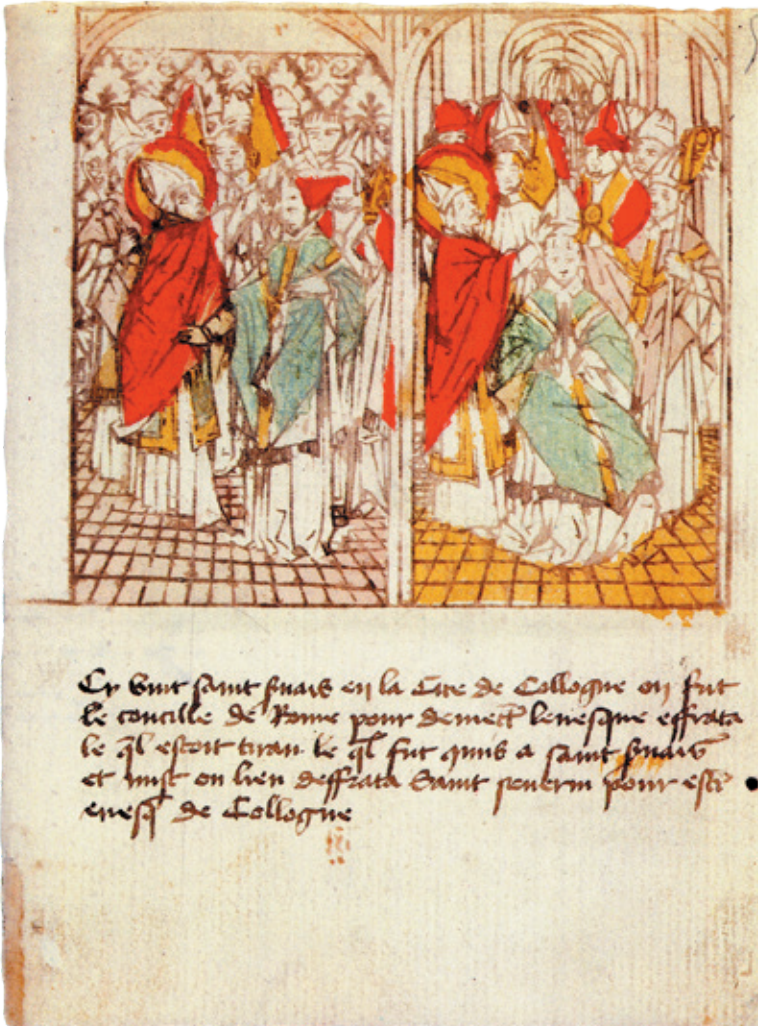 Cy vint saint suais en la Cite de Collogne ou fut
le concille de Rome pour demect levesque effrata
le ql estoit tiran le ql fut quis a saint suais
et mist on lieu deffrata Saint severin pour estr
evesq de Collogne